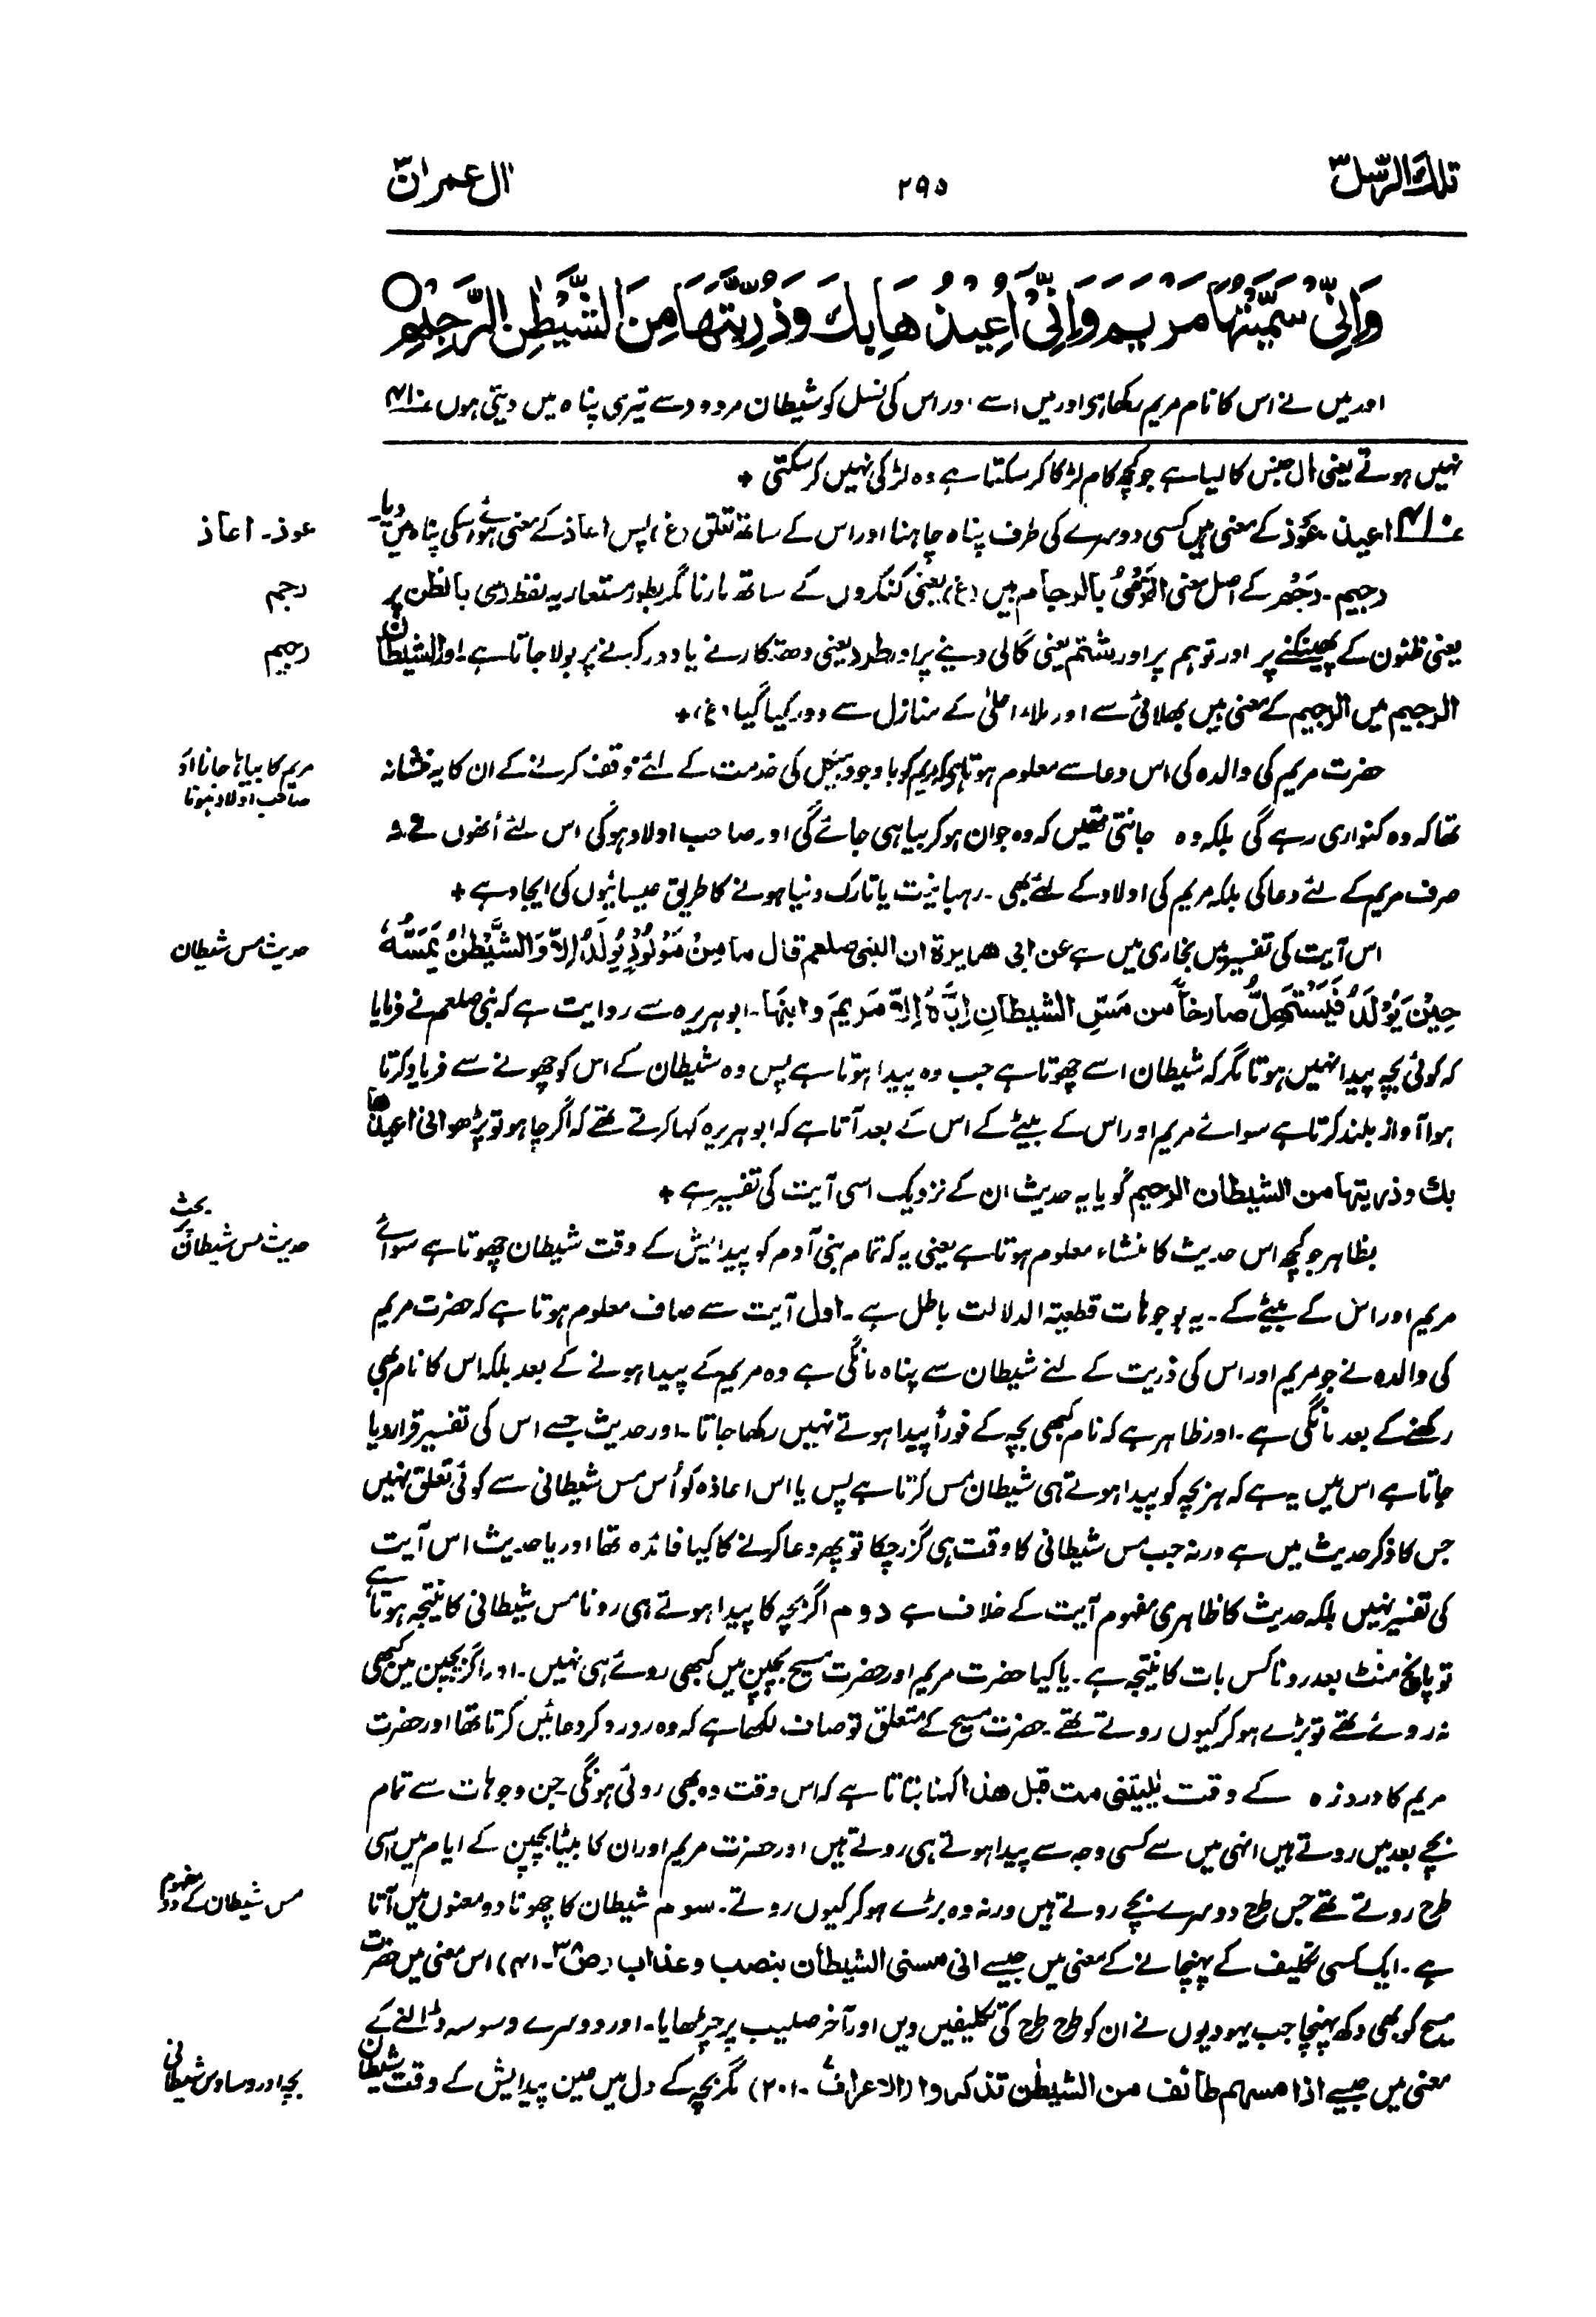 تلك الرسل ٣
٢٩٥
اٰل عمران ٣
وَاِنِّیْ سَمَّیْتُهَا مَرْیَمَ وَاِنِّیْۤ اُعِیْذُهَا بِكَ وَذُرِّیَّتَهَا مِنَ الشَّیْطٰنِ الرَّجِیْمِ ○
اور میں نے اس کا نام مریم رکھا ہی اور میں اسے اور اس کی نسل کو شیطان مردود سے تیری پناہ میں دیتی ہوں ٤١٠
نہیں ہوتے یعنی ال جنس کا لیا ہے جو کچھ کام لڑکا کر سکتا ہے وہ لڑکی نہیں کر سکتی +
٤١٠ اعیذ۔ عَوْذ کے معنی ہیں کسی دوسرے کی طرف پناہ چاہنا اور اس کے ساتھ تعلق (غ) پس اعاذ کے معنی ہوئے اسکی پناہ میں دیا۔
عوذ۔ اعاذ
رجیم۔ رَجْم کے اصل معنی الرَّمْیُ بالرجام ہیں (غ) یعنی کنکروں کے ساتھ مارنا مگر بطور استعارہ یہ لفظ رمی بالظن پر
رجم
یعنی ظنون کے پھینکنے پر اور توہم پر اور شتم یعنی گالی دینے پر اور طرد یعنی دھتکارنے یا دور کرنے پر بولا جاتا ہے۔ اور الشیطان
رجیم
الرجیم میں الرجیم کے معنی ہیں بھلائی سے اور ملاء اعلیٰ کے منازل سے دور کیا گیا (غ) +
حضرت مریم کی والدہ کی اس دعا سے معلوم ہوتا ہی کہ مریم کو باوجود ہیکل کی خدمت کے لئے وقف کرنے کے ان کا یہ منشا نہ
مریم کا بیاہا جانا اور
صاحب اولاد ہونا
تھا کہ وہ کنواری رہے گی بلکہ وہ جانتی تھیں کہ وہ جوان ہو کر بیاہی جائے گی اور صاحب اولاد ہوگی اس لئے اُنھوں نے نہ
صرف مریم کے لئے دعا کی بلکہ مریم کی اولاد کے لئے بھی۔ رہبانیت یا تارک دنیا ہونے کا طریق عیسائیوں کی ایجاد ہے +
اس آیت کی تفسیر میں بخاری میں ہے عن ابی ھریرة ان النبی صلعم قال ما مِنْ مَوْلُوْدٍ یُولَدُ اِلَّا وَالشَّیْطٰنُ یَمَسُّهٗ
حدیث مس شیطان
حِیْنَ یُوْلَدُ فَیَسْتَهِلُّ صارخاً من مَسِّ الشیطانِ اِیَّاهُ اِلَّا مَرْیَمَ وابنَهَا۔ ابوہریرہ سے روایت ہے کہ نبی صلعم نے فرمایا
کہ کوئی بچہ پیدا نہیں ہوتا مگر کہ شیطان اسے چھوتا ہے جب وہ پیدا ہوتا ہے پس وہ شیطان کے اس کو چھونے سے فریاد کرتا
ہوا آواز بلند کرتا ہے سوائے مریم اور اس کے بیٹے کے اس کے بعد آتا ہے کہ ابوہریرہ کہا کرتے تھے کہ اگر چاہو تو پڑھو انی اعیذھا
بك وذریتها من الشیطان الرجیم گویا یہ حدیث ان کے نزدیک اسی آیت کی تفسیر ہے +
بظاہر جو کچھ اس حدیث کا منشاء معلوم ہوتا ہے یعنی یہ کہ تمام بنی آدم کو پیدائیش کے وقت شیطان چھوتا ہے سوائے
بحث
حدیث مس شیطان پر
مریم اور اس کے بیٹے کے۔ یہ بوجوہات قطعیۃ الدلالت باطل ہے۔ اول آیت سے صاف معلوم ہوتا ہے کہ حضرت مریم
کی والدہ نے جو مریم اور اس کی ذریت کے لئے شیطان سے پناہ مانگی ہے وہ مریم کے پیدا ہونے کے بعد بلکہ اس کا نام بھی
رکھنے کے بعد مانگی ہے۔ اور ظاہر ہے کہ نام کبھی بچہ کے فوراً پیدا ہوتے نہیں رکھا جاتا۔ اور حدیث جسے اس کی تفسیر قرار دیا
جاتا ہے اس میں یہ ہے کہ ہر بچہ کو پیدا ہوتے ہی شیطان مس کرتا ہے پس یا اس اعاذہ کو اُس مس شیطانی سے کوئی تعلق نہیں
جس کا ذکر حدیث میں ہے ورنہ جب مس شیطانی کا وقت ہی گزر چکا تو پھر دعا کرنے کا کیا فائدہ تھا اور یا حدیث اس آیت
کی تفسیر نہیں بلکہ حدیث کا ظاہری مفہوم آیت کے خلاف ہے دوم اگر بچہ کا پیدا ہوتے ہی رونا مس شیطانی کا نتیجہ ہوتا ہے
تو پانچ منٹ بعد رونا کس بات کا نتیجہ ہے۔ یا کیا حضرت مریم اور حضرت مسیح بچپن میں کبھی روئے ہی نہیں۔ اور اگر بچپن میں کبھی
نہ روئے تھے تو بڑے ہو کر کیوں روتے تھے۔ حضرت مسیح کے متعلق تو صاف لکھا ہے کہ وہ رورو کر دعائیں کرتا تھا اور حضرت
مریم کا درد زہ کے وقت یٰلیتنی مت قبل ھذا کہنا بتاتا ہے کہ اس وقت وہ بھی روئی ہونگی جن وجوہات سے تمام
بچے بعد میں روتے ہیں انہی میں سے کسی وجہ سے پیدا ہوتے ہی روتے ہیں اور حضرت مریم اور ان کا بیٹا بچپن کے ایام میں اسی
طرح روتے تھے جس طرح دوسرے بچے روتے ہیں ورنہ وہ بڑے ہو کر کیوں روتے۔ سوم شیطان کا چھونا دو معنوں میں آتا
مس شیطان کے دو مفہوم
ہے۔ ایک کسی تکلیف کے پہنچانے کے معنی میں جیسے انی مسنی الشیطان بنصب وعذاب (صٓ ٣٨۔ ٤١) اس معنی میں حضرت
مسیح کو بھی دکھ پہنچا جب یہودیوں نے ان کو طرح طرح کی تکلیفیں دیں اور آخر صلیب پر چڑھایا۔ اور دوسرے وسوسہ ڈالنے کے
معنی میں جیسے اذا مسهم طائف من الشیطٰن تذکروا (الاعراف ٧۔ ٢٠١) مگر بچہ کے دل میں عین پیدایش کے وقت شیطان
بچہ اور وساوس شیطانی